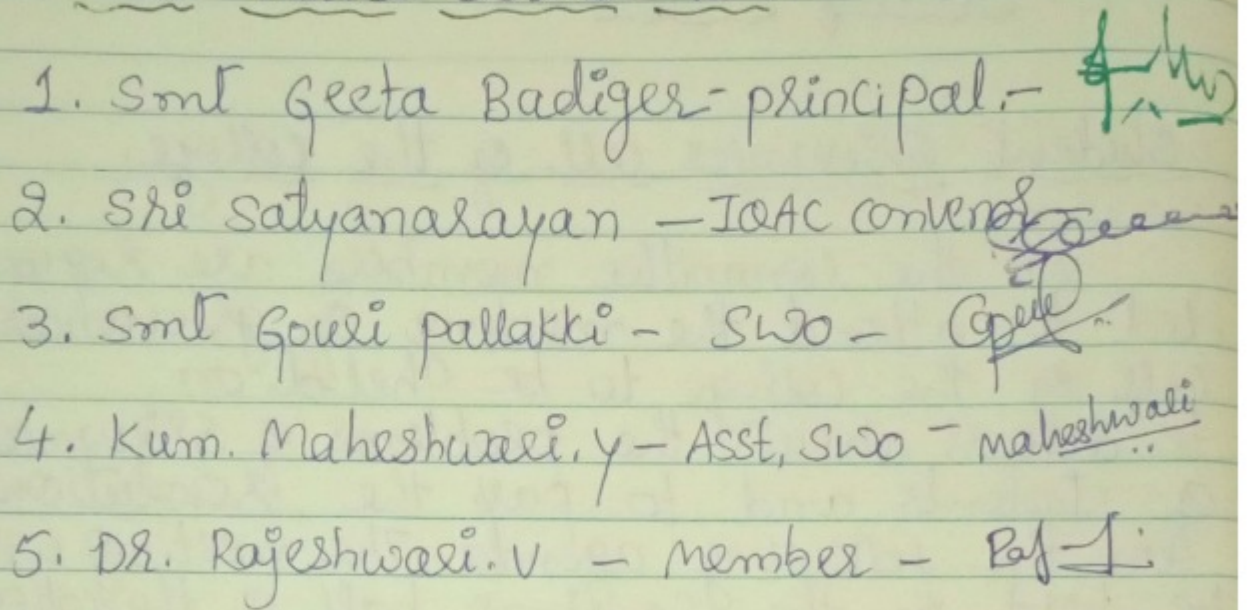 1. Smt Geeta Badiger - principal. -
2. Sri Satyanarayan - IQAC Convenor
3. Smt Gouri Pallakki - SWO -
4. Kum. Maheshwari. Y - Asst, SWO - Maheshwari
5. DR. Rajeshwari. V - Member -